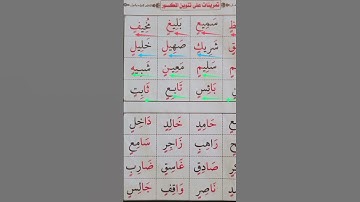 تمرينات على تنوين الكسر
سَمِيعٍ بَلِيغٍ مُخِيفٍ
شَرِيكٍ صَهِيلٍ خَلِيلٍ
سَلِيمٍ مَعِينٍ شَبِيهٍ
بَائِسٍ تَابِعٍ ثَابِتٍ
حَامِدٍ خَالِدٍ دَاخِلٍ
رَاهِبٍ زَاجِرٍ سَامِعٍ
صَادِقٍ غَاسِقٍ ضَارِبٍ
نَاصِرٍ وَاقِفٍ جَالِسٍ